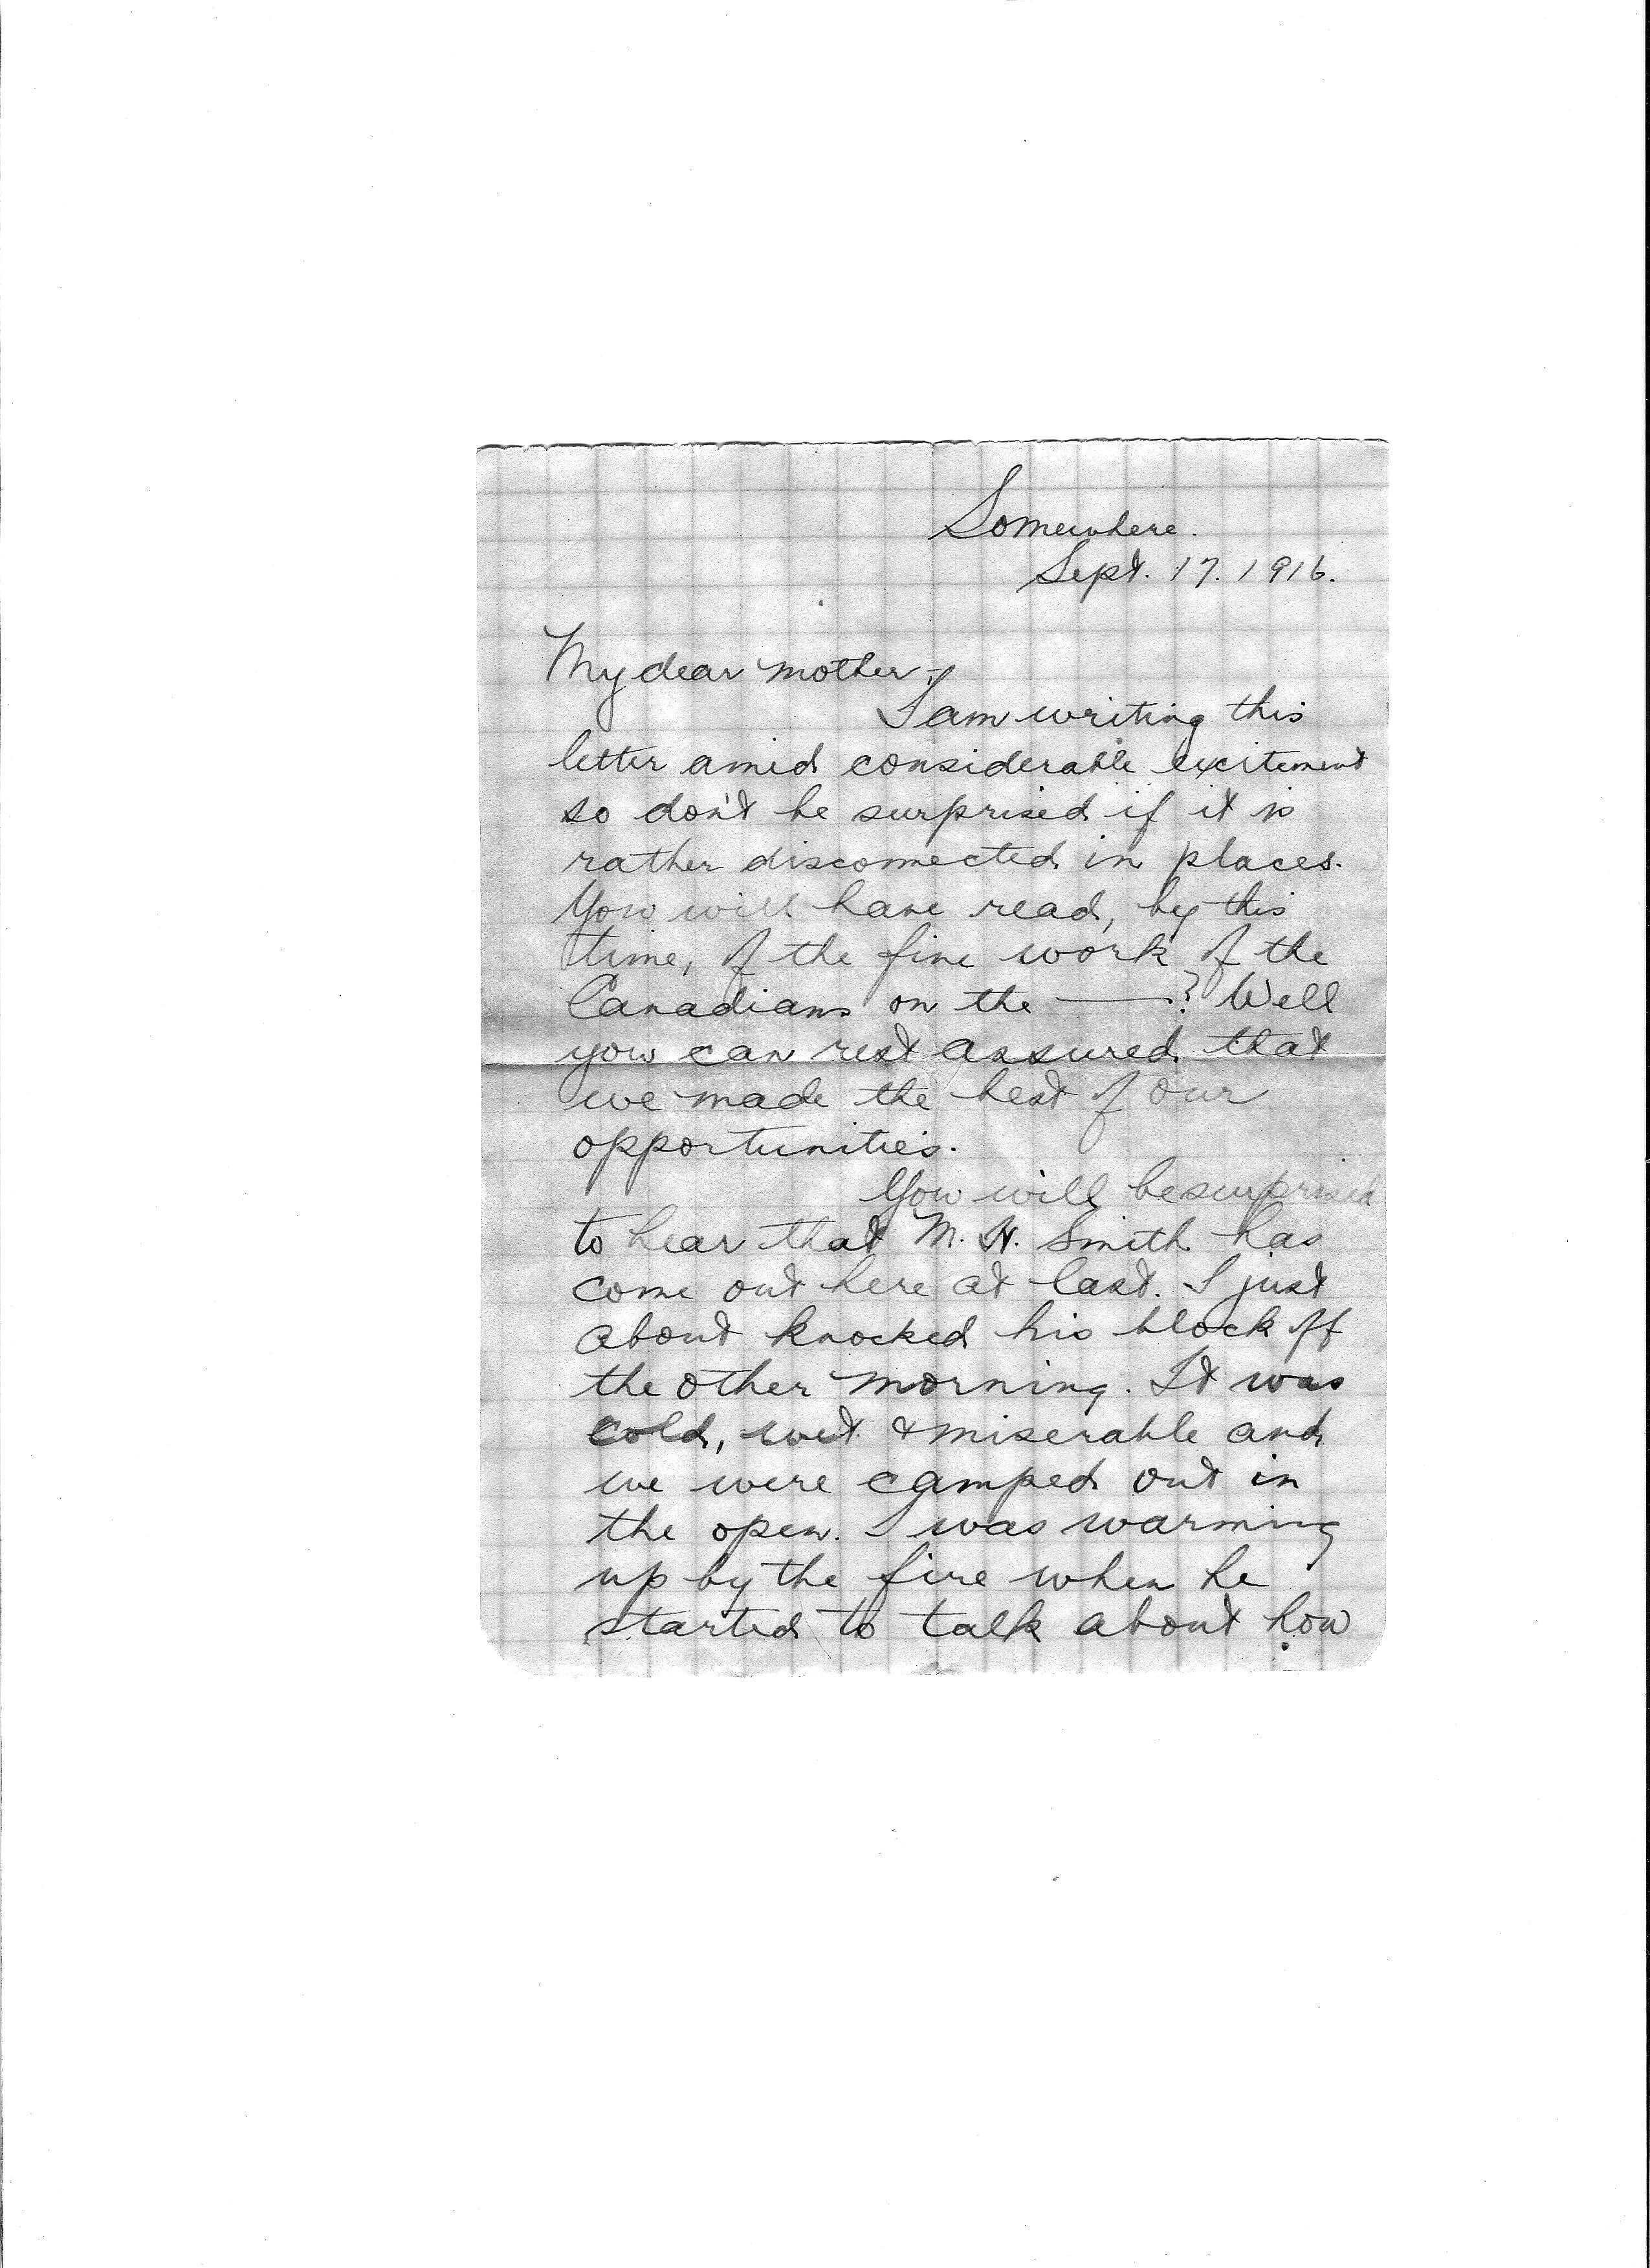 Somewhere.
Sept. 17. 1916.
My dear mother;
I am writing this
letter amid considerable excitement
so don't be surprised if it is
rather disconnected in places.
You will have read, by this
time, of the fine work of the
Canadians on the ——? Well
you can rest assured that
we made the best of our
opportunities.
You will be surprised
to hear that M. H. Smith has
come out here at last. I just
about knocked his block off
the other morning. It was
cold, wet & miserable and
we were camped out in
the open. I was warming
up by the fire when he
started to talk about how